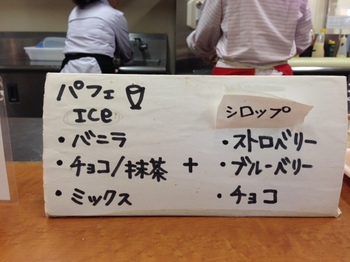 パフェ
ICe
・バニラ
・チョコ/抹茶
・ミックス
+
シロップ
・ストロベリー
・ブルーベリー
・チョコ